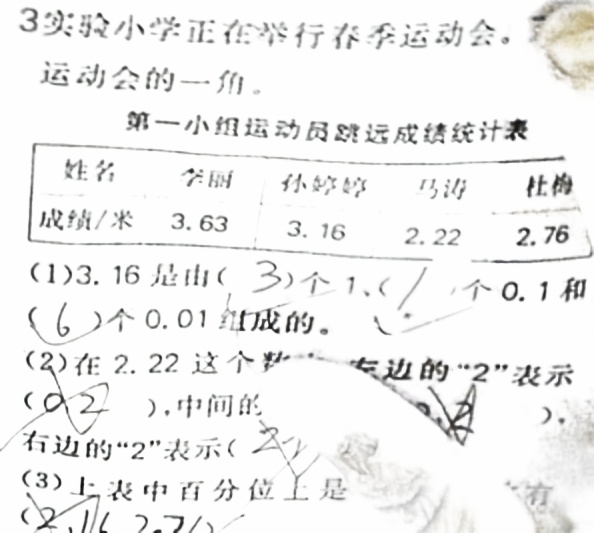 3实验小学正在举行春季运动会。
运动会的一角。
第一小组运动员跳远成绩统计表
姓名 李丽 孙婷婷 马涛 杜梅
成绩/米 3.63 3.16 2.22 2.76
(1)3.16是由( 3 )个1、( 1 个0.1和
( 6 )个0.01组成的。
(2)在2.22这个 左边的“2”表示
( ),中间的 ),
右边的“2”表示(
(3)上表中百分位上是 有
(